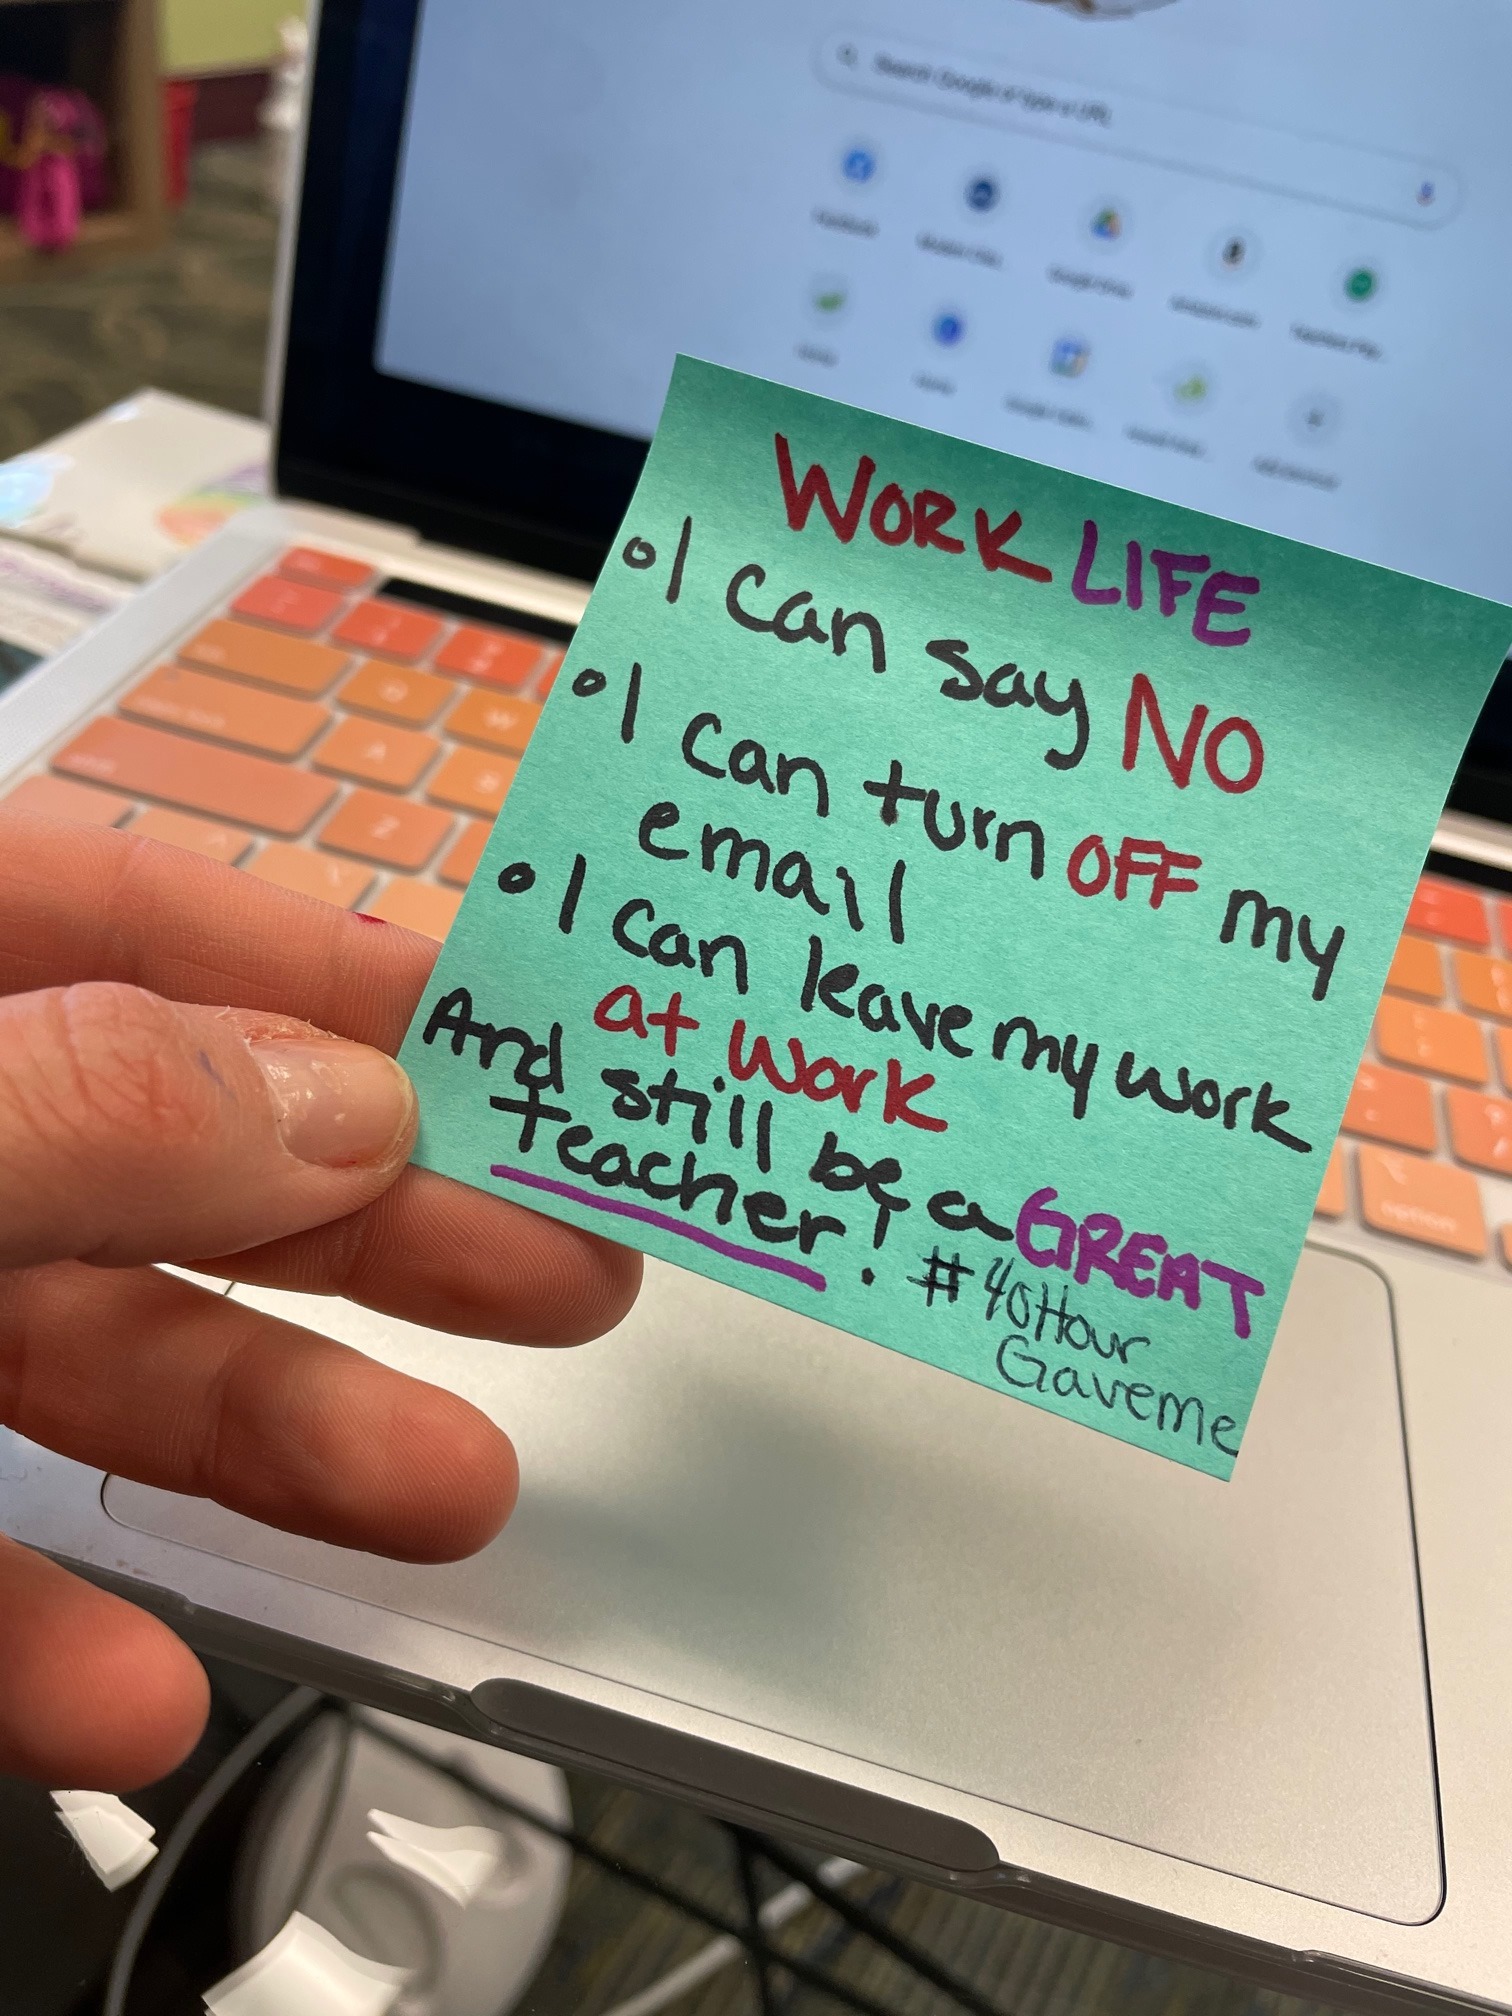 Search Google or type a URL
Facebook
Google Drive
WORK LIFE
• I can say NO
• I can turn OFF my
email
• I can leave my work
at work
And still be a GREAT
teacher!
#40Hour
Gaveme
A
Z
option